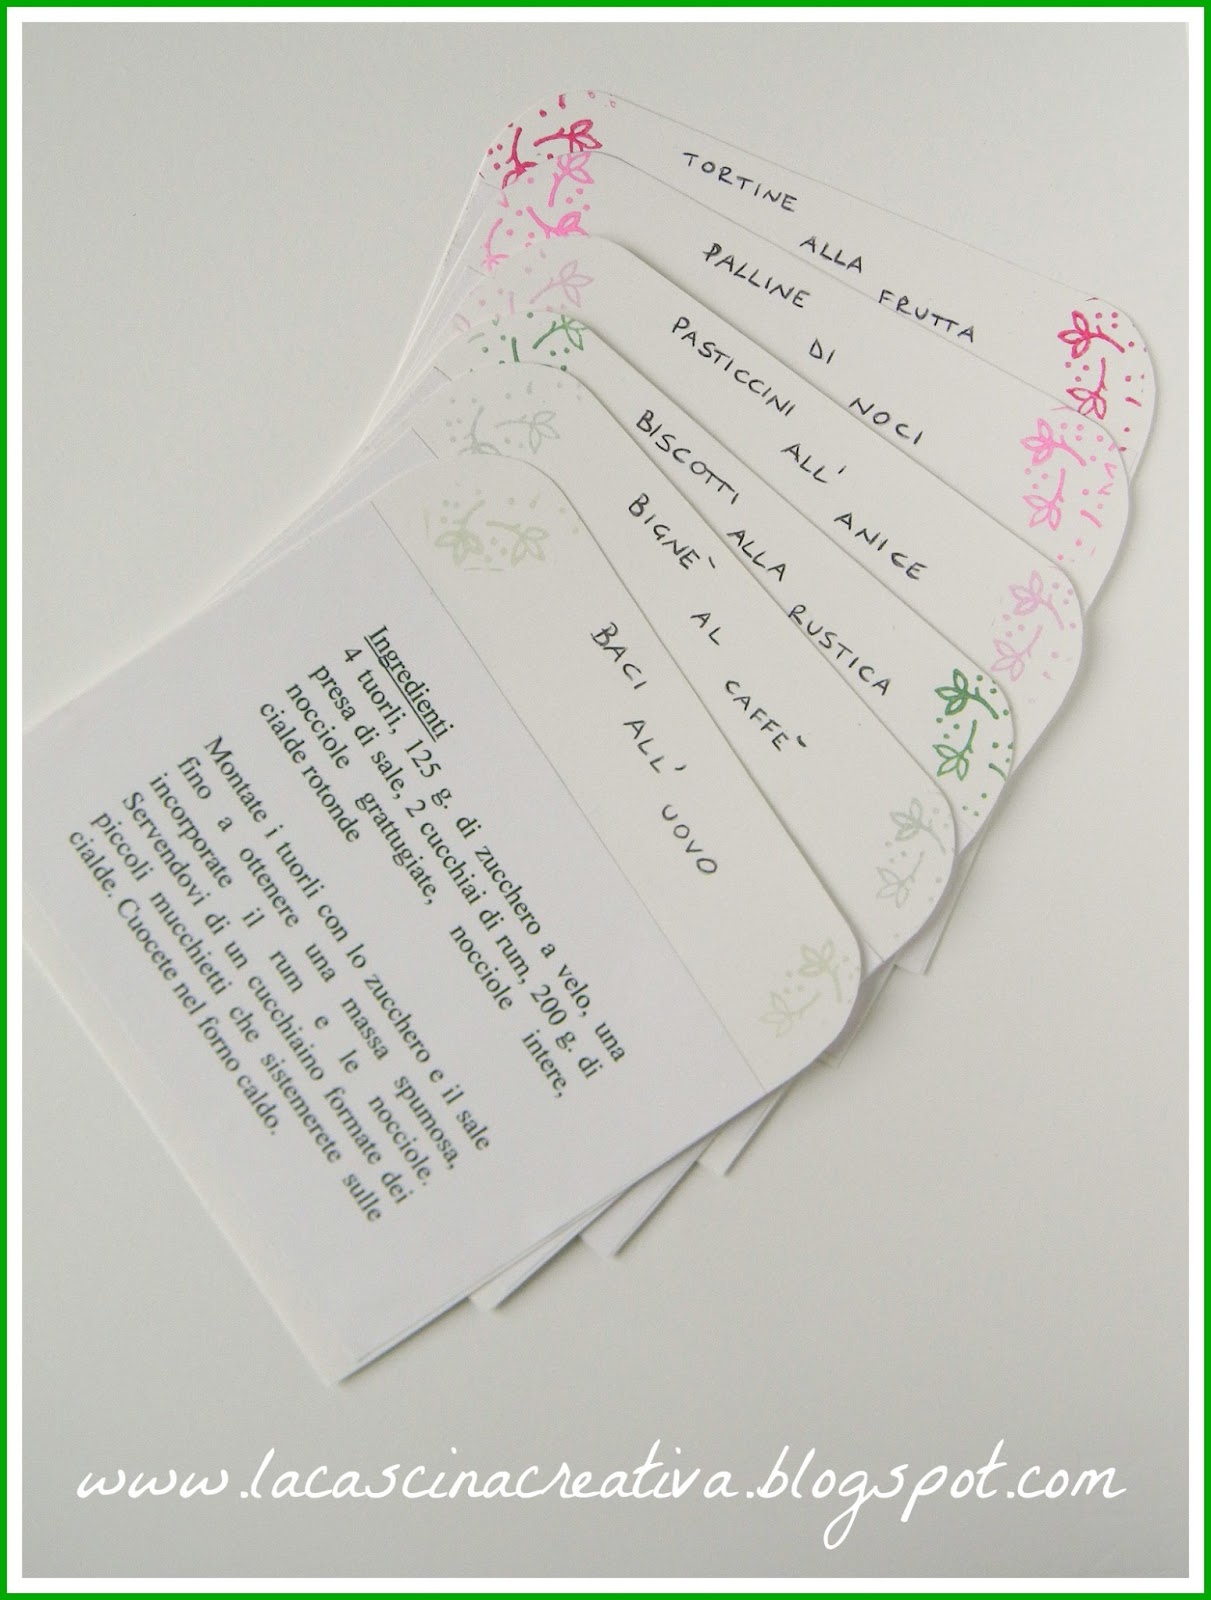 TORTINE ALLA FRUTTA
PALLINE DI NOCI
PASTICCINI ALL' ANICE
BISCOTTI ALLA RUSTICA
BIGNE` AL CAFFE`
BACI ALL' UOVO
Ingredienti
4 tuorli, 125 g. di zucchero a velo, una
presa di sale, 2 cucchiai di rum, 200 g. di
nocciole grattugiate, nocciole intere,
cialde rotonde
Montate i tuorli con lo zucchero e il sale
fino a ottenere una massa spumosa,
incorporate il rum e le nocciole.
Servendovi di un cucchiaino formate dei
piccoli mucchietti che sistemerete sulle
cialde. Cuocete nel forno caldo.
www.lacascinacreativa.blogspot.com